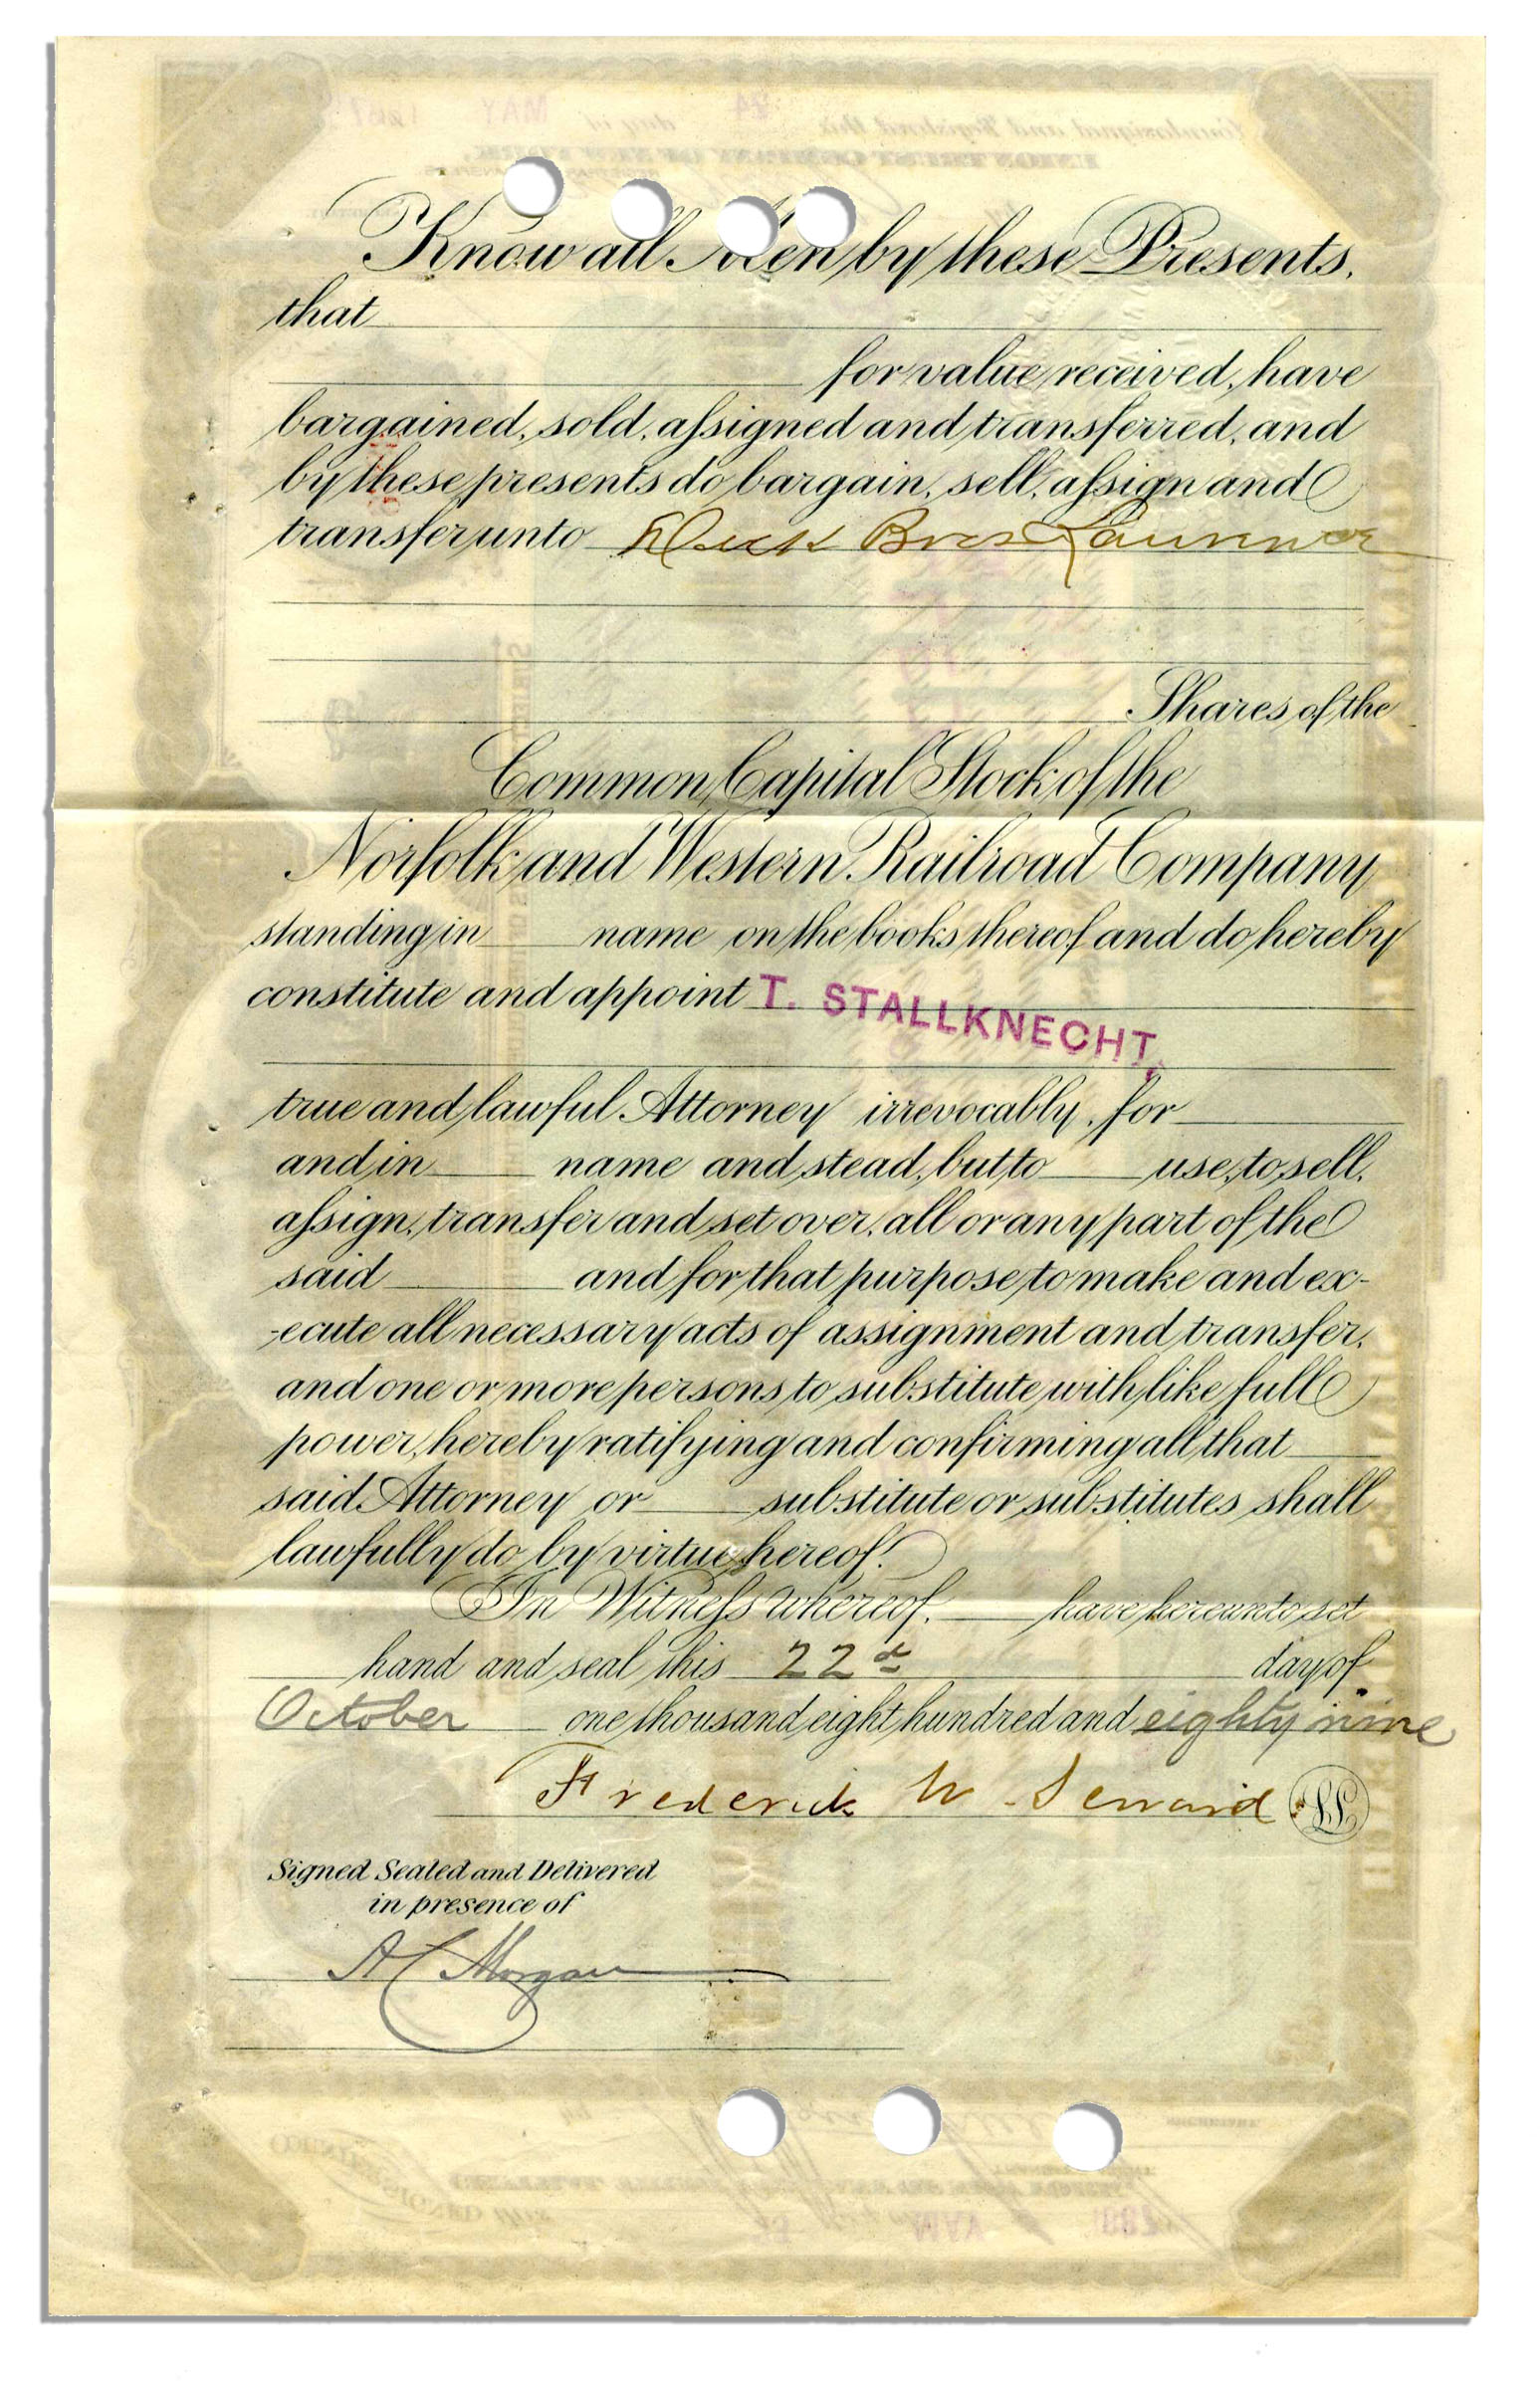 Know all Men by these Presents,
that
for value received, have
bargained, sold, assigned and transferred, and
by these presents do bargain, sell, assign and
transfer unto Bros
Shares of the
Common Capital Stock of the
Norfolk and Western Railroad Company
standing in name on the books thereof and do hereby
constitute and appoint T. STALLKNECHT,
true and lawful Attorney irrevocably, for
and in name and stead, but to use, to sell,
assign, transfer and set over, all or any part of the
said and for that purpose to make and ex-
-ecute all necessary acts of assignment and transfer,
and one or more persons to substitute with like full
power, hereby ratifying and confirming all that
said Attorney or substitute or substitutes shall
lawfully do by virtue hereof.
In Witness whereof, have hereunto set
hand and seal this 22d day of
October one thousand eight hundred and eighty nine
Frederick W. Seward LS
Signed Sealed and Delivered
in presence of
A C Morgan